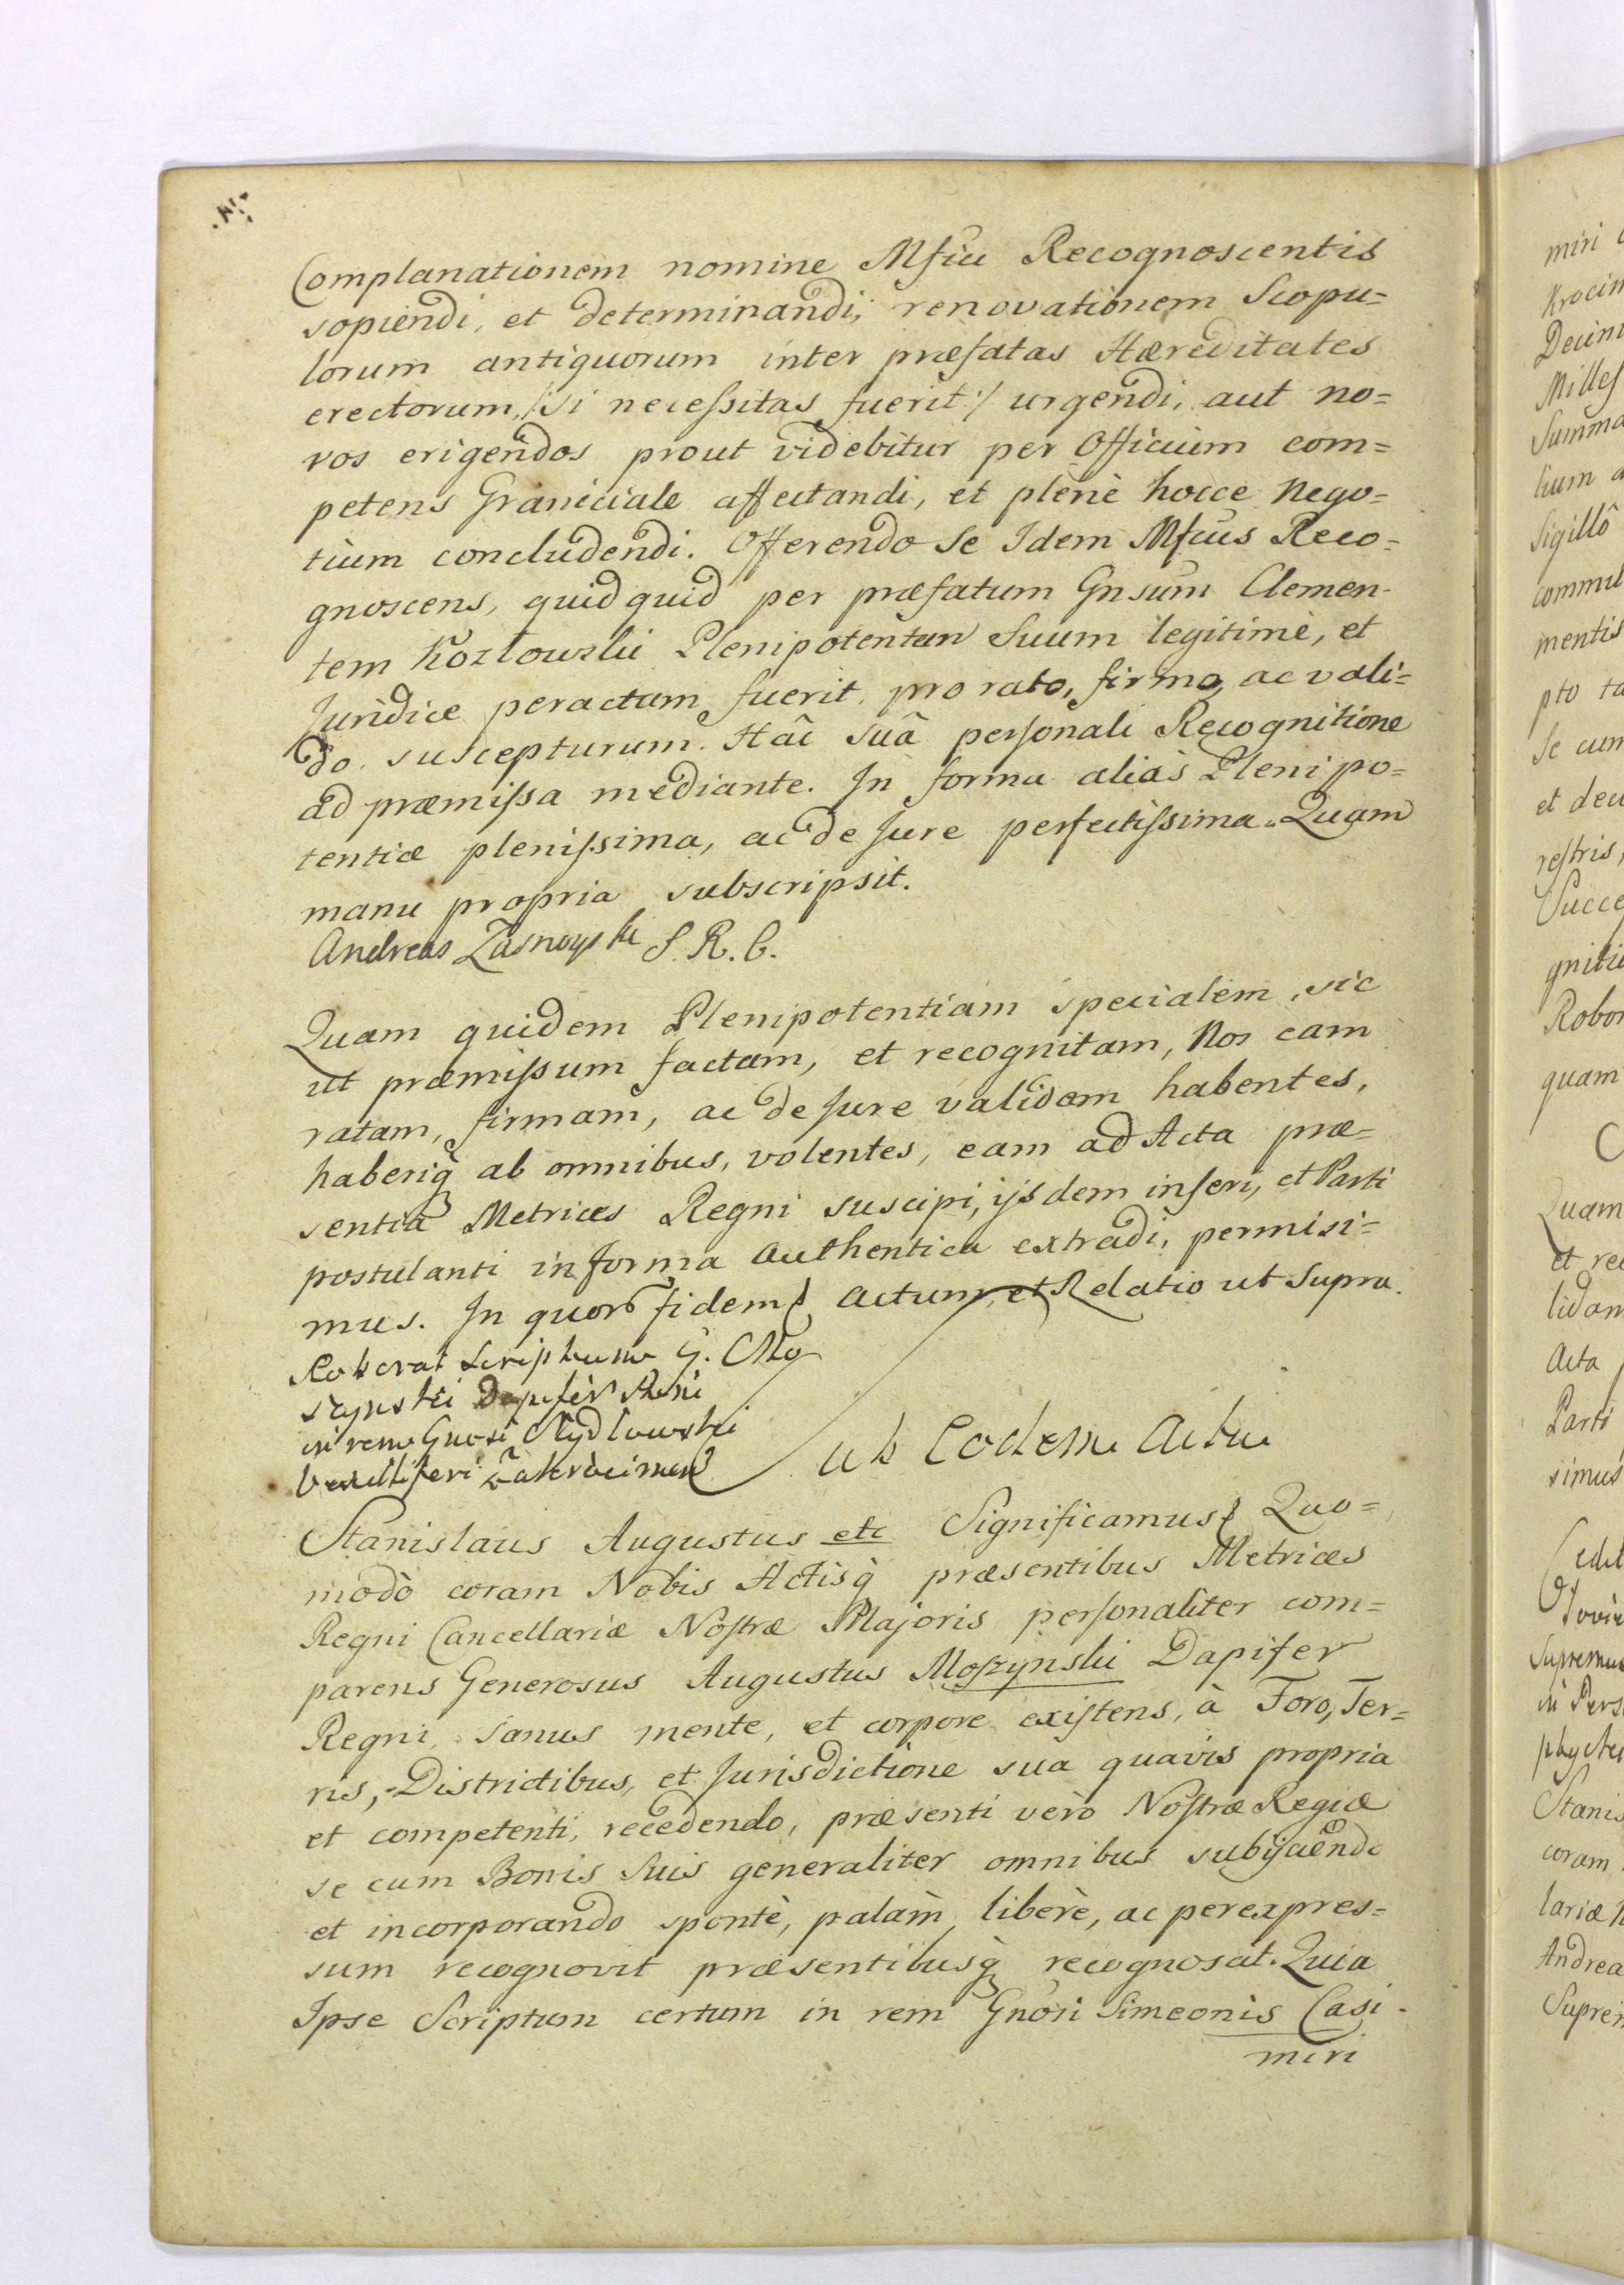 Complanationem nomine Mfici Recognoscentis
sopiendi, et determinandi, renovationem Scopu=
lorum antiquorum inter præfatas Hæreditates
erectorum, /:si necessitas fuerit:/ urgendi, aut no=
vos erigendos prout videbitur per Officium com=
petens Graniciale affectandi, et plenè hocce Nego=
tium concludendi. Offerendo Se Idem Mficus Reco=
gnoscens, quidquid per præfatum Gnsum Clemen-
tem Kozlowski Plenipotentem Suum legitimè, et
Juridice peractum fuerit, pro rato, firmo, ac vali=
do suscepturum. Hâc Suâ personali Recognitione
ad præmissa mediante. In forma aliàs Plenipo=
tentiæ plenissima, ac de Jure perfectissima. Quam
manu propria subscripsit.
Andreas Zamoyski S. R. C.
Quam quidem Plenipotentiam specialem, sic
ut præmissum factam, et recognitam, Nos eam
ratam, firmam, ac de Jure validam habentes,
haberiq̀ ab omnibus, volentes, eam ad Acta præ=
sentia Metrices Regni suscipi, ijsdem inseri, et Parti
postulanti in forma authentica extradi, permisi=
mus. In quor fidem Actum, et Relatio ut Supra.
Roborat Scriptum G. Mo
szynski Dapifer Regni
in rem Gnosi Mydlowski
Vexilliferi Zakrocimen
ub Eodem Actu
Stanislaus Augustus etc Significamus Quo=
modò coram Nobis Actisq̀ præsentibus Metrices
Regni Cancellariæ Nostræ Majoris personaliter com=
parens Generosus Augustus Moszynski Dapifer
Regni, Sanus mente, et corpore existens, à Foro, Ter=
ris, Districtibus, et Jurisdictione sua quavis propria
et competenti, recedendo, præsenti verò Nostræ Regiæ
se cum Bonis Suis generaliter omnibus subijciendo
et incorporando spontè, palàm, liberè, ac per expres=
sum recognovit præsentibusq̀ recognoscit. Quia
Ipse Scriptum certum in rem Gnosi Simeonis Casi-
miri